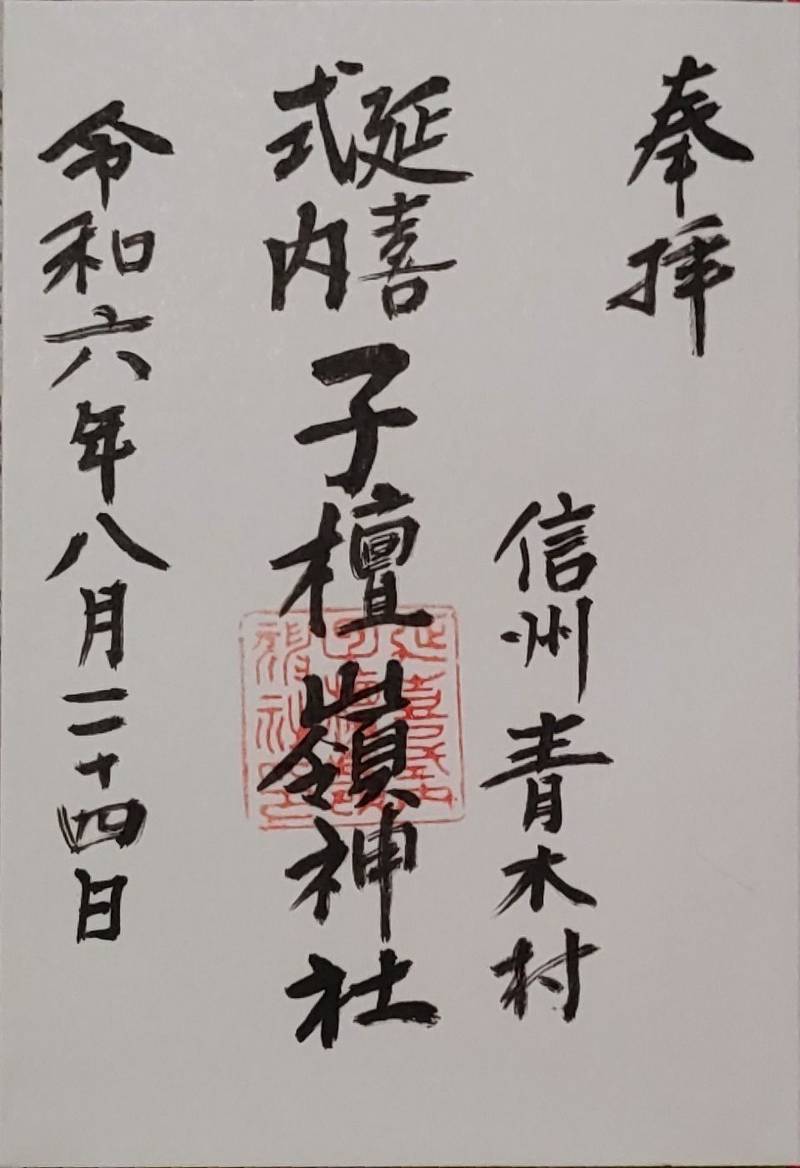 奉拝
信州青木村
延喜
式内
子檀嶺神社
令和六年八月二十四日